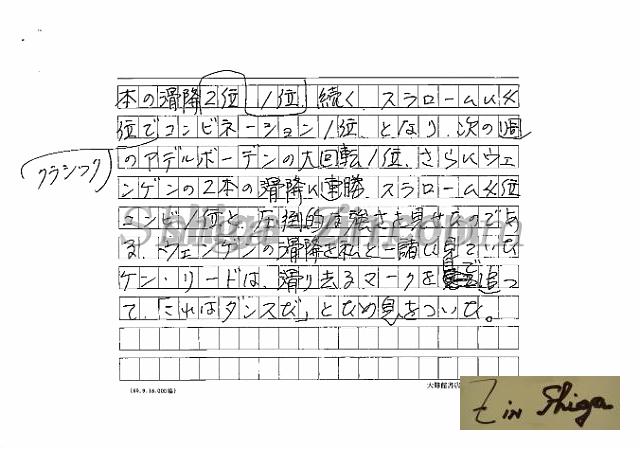 本の滑降2位 1位、続く、スラロームは4
位でコンビネーション1位、となり、次の週
クラシック
のアデルボーデンの大回転1位、さらにウェ
ンゲンの2本の滑降に連勝、スラローム4位
コンビ1位と、圧倒的な強さを見せたのであ
る。ウェンゲンの滑降を私と一諸に見ていた
ケン・リードは、滑り去るマークを目で追っ
て、「これはダンスだ」とため息をついた。
大韓館書店
Z in Shiga